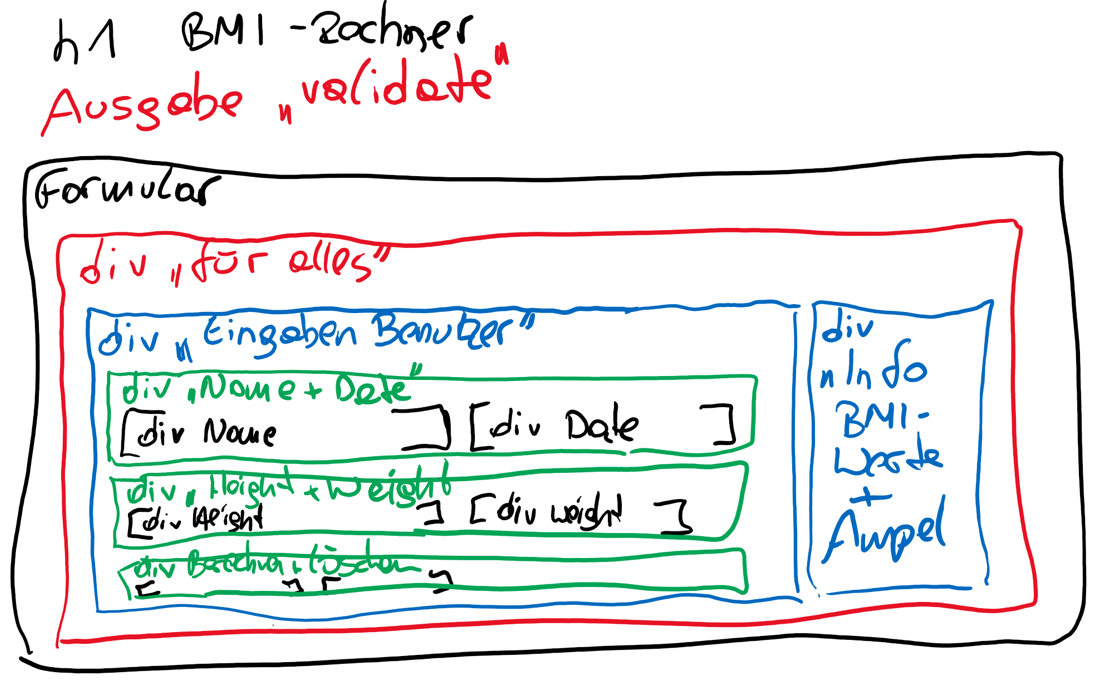 h1 BMI-Rechner
Ausgabe „validate"
Formular
div „für alles"
div „Eingaben Benutzer"
div „Name + Date"
div Name
div Date
div „Height + Weight
div Height
div weight
div Berechnen + Löschen
div
„Info
BMI-
Werte
+
Ampel